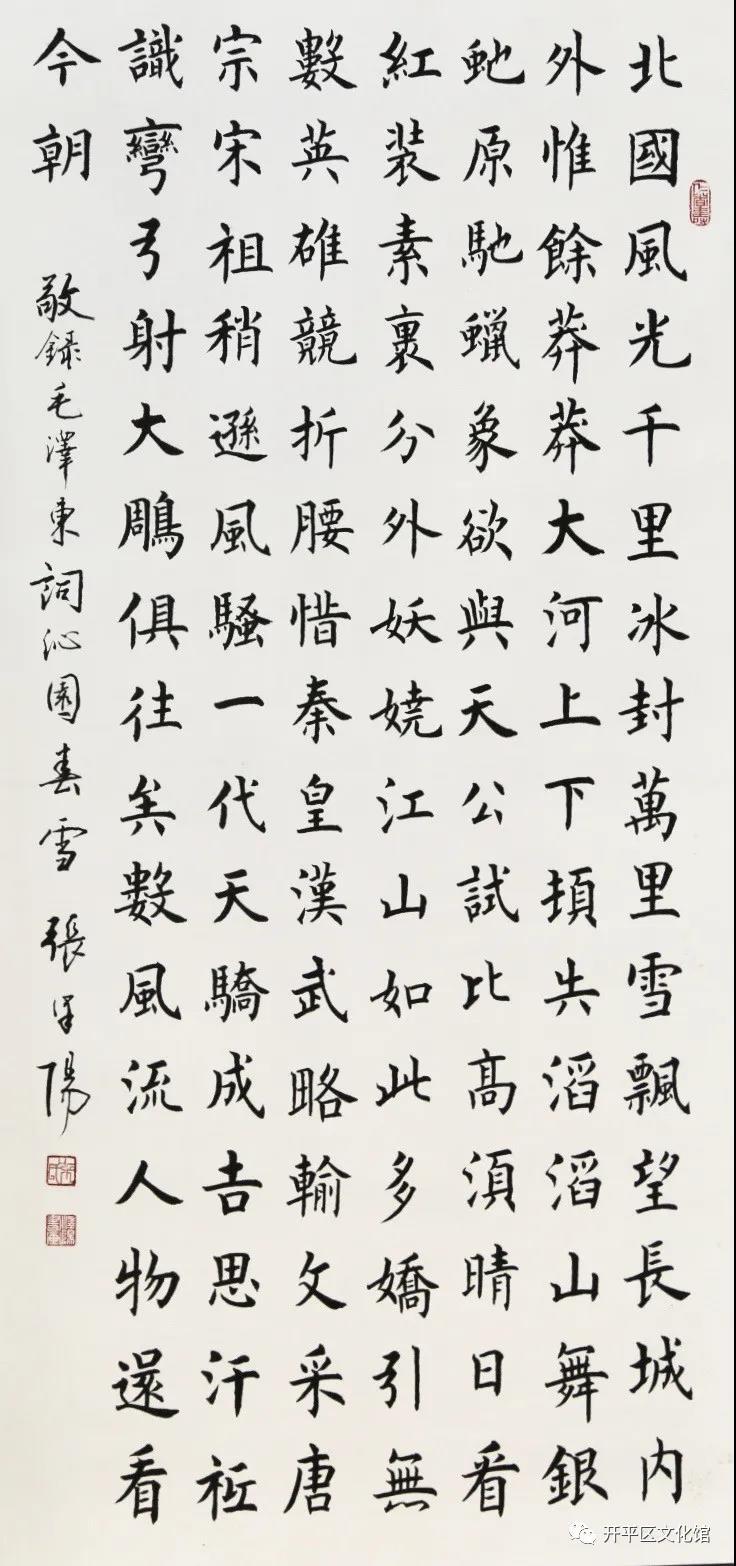 北國風光千里冰封萬里雪飄望長城内
外惟餘莽莽大河上下頓失滔滔山舞銀
虵原馳蠟象欲與天公試比髙須晴日看
紅装素裹分外妖嬈江山如此多嬌引無
數英雄競折腰惜秦皇漢武略輸文采唐
宗宋祖稍遜風騷一代天驕成吉思汗祗
識彎弓射大鵰俱往矣數風流人物還看
今朝 敬録毛澤東詞沁園春雪 張陽
开平区文化馆